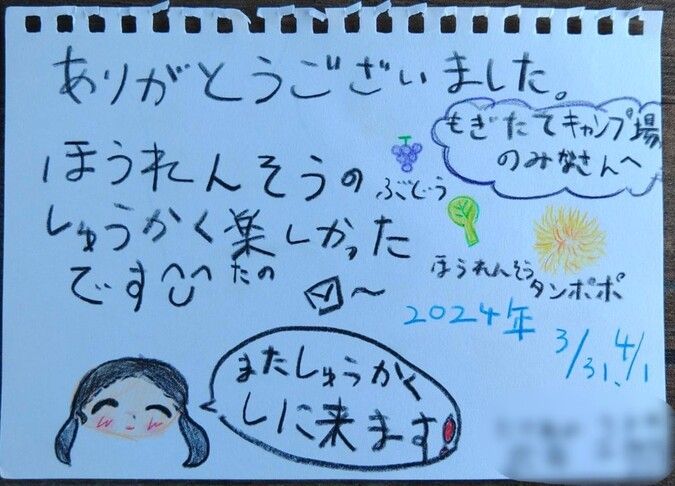 ありがとうございました。
もぎたてキャンプ場
のみなさんへ
ほうれんそうの
ぶどう
しゅうかく楽しかった
たの
です
ほうれんそう
タンポポ
2024年
3/31、4/1
またしゅうかく
しに来ます!